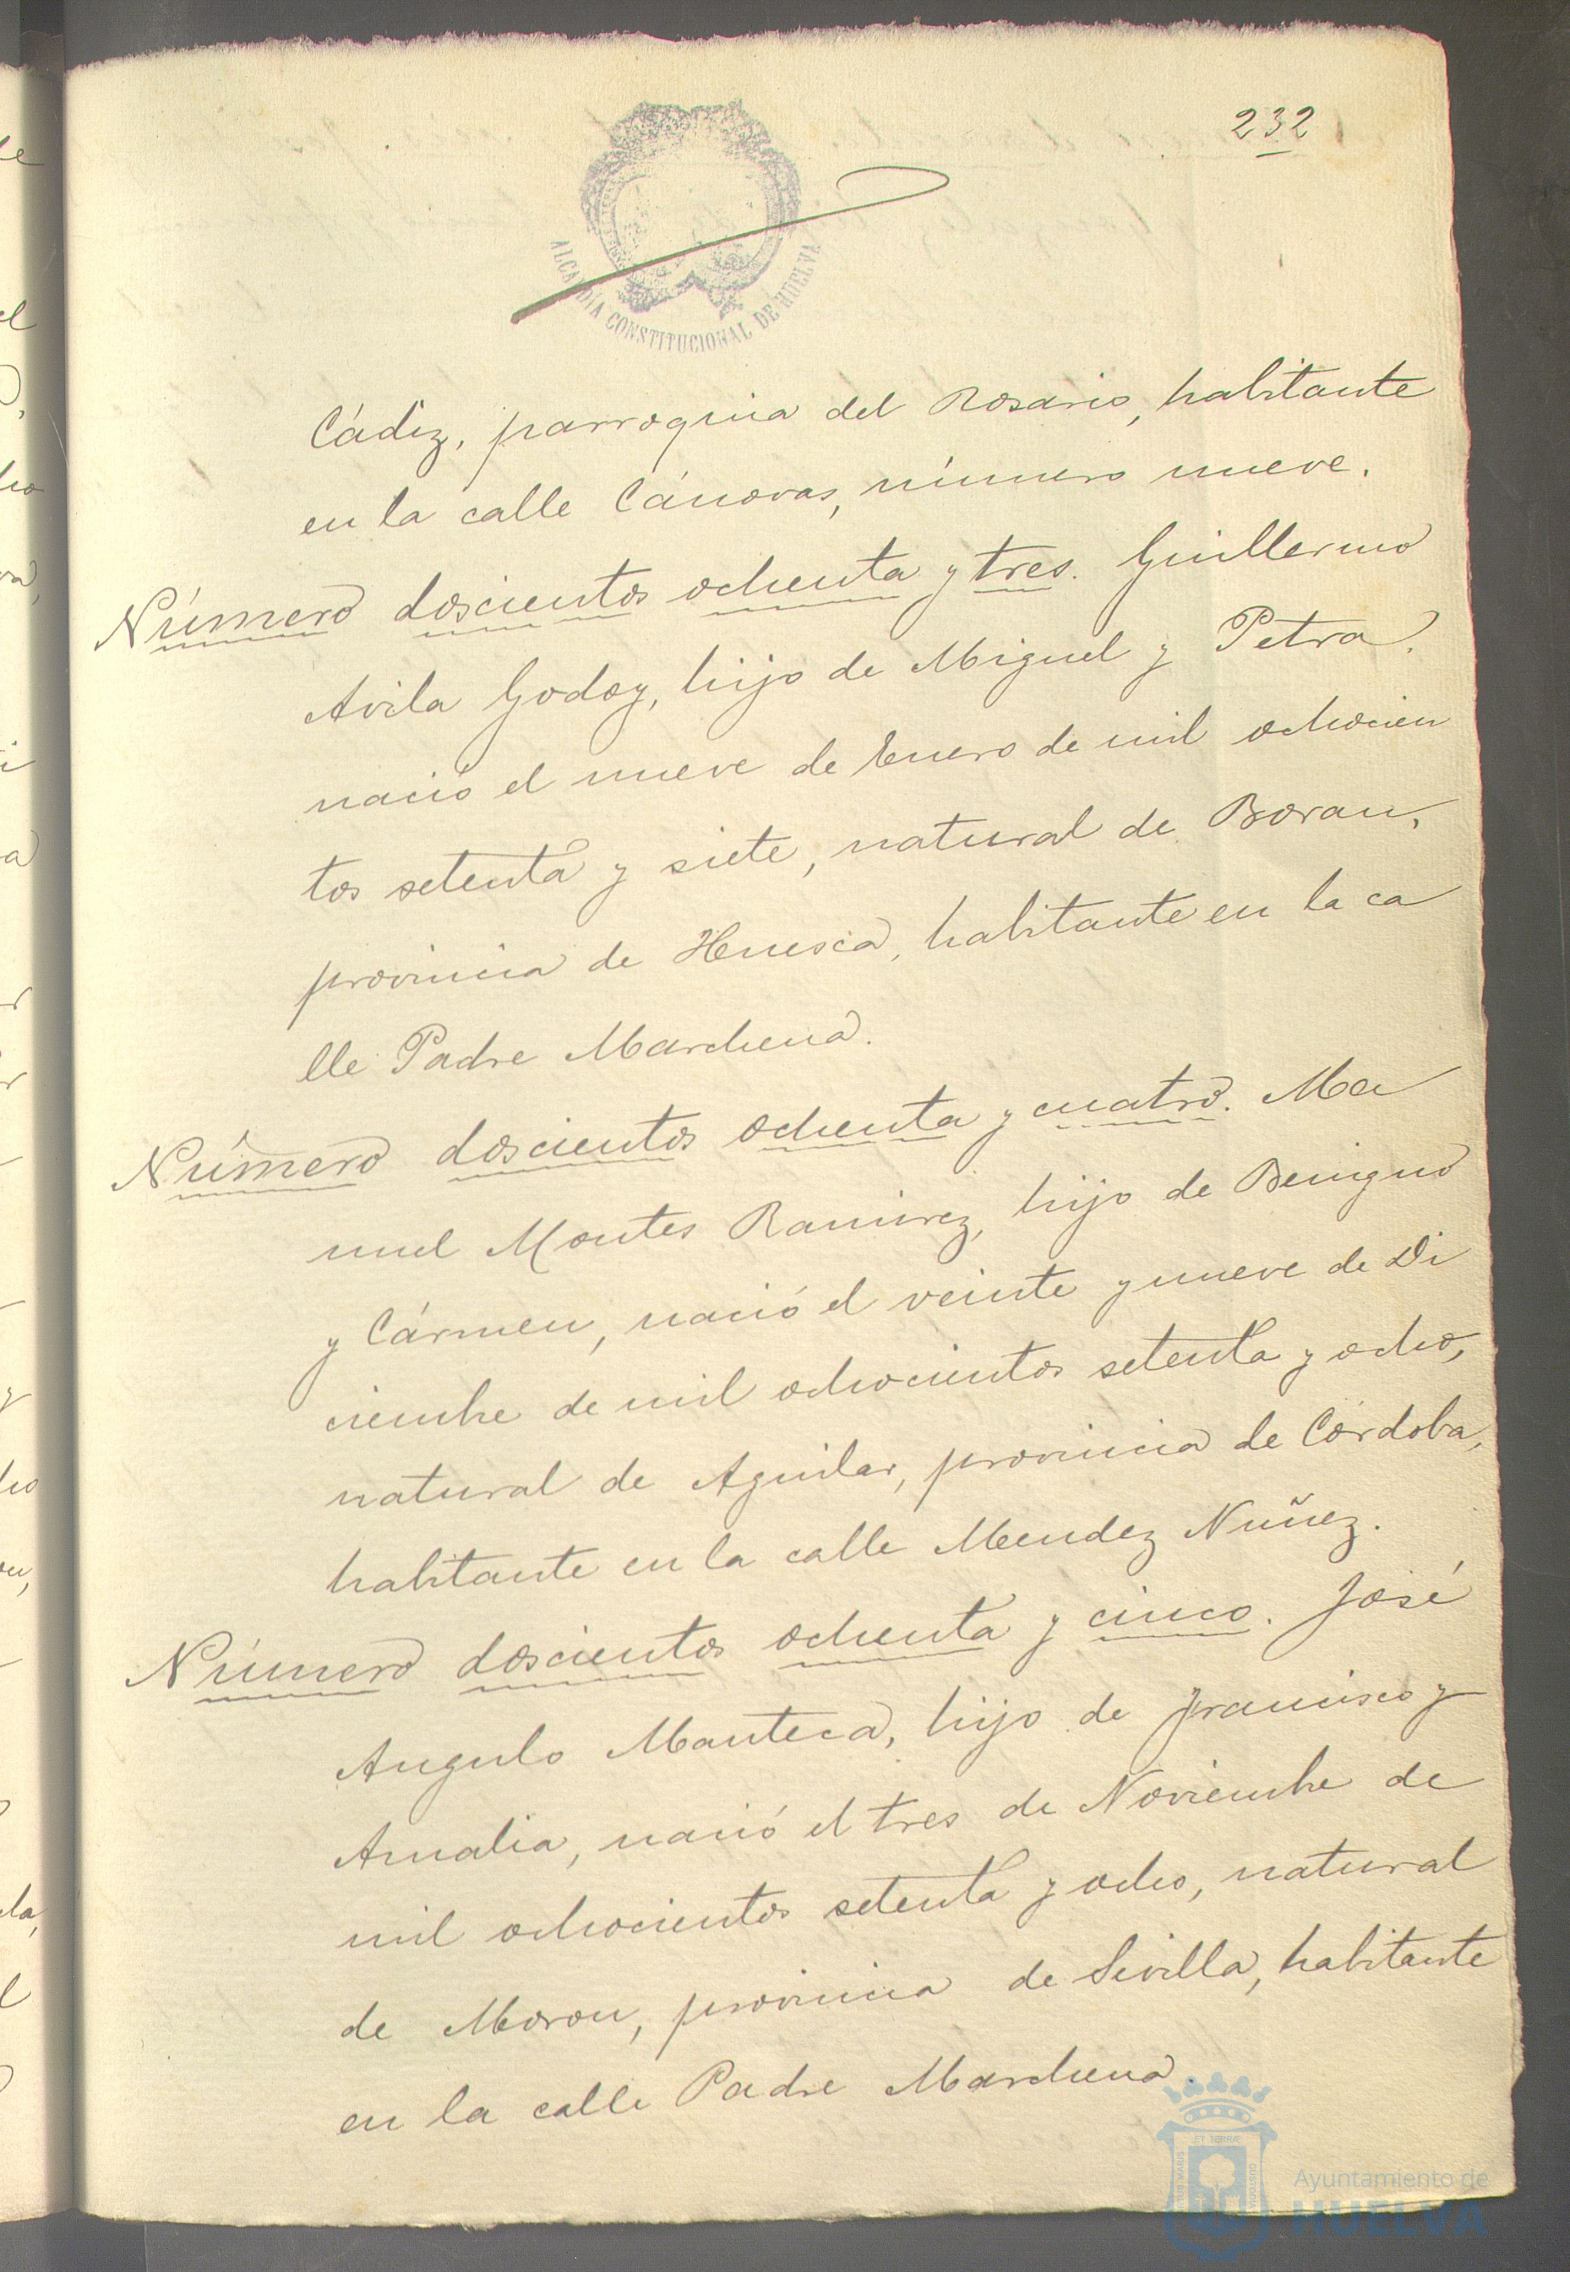 232
ALCALDÍA CONSTITUCIONAL DE HUELVA
Cádiz, parroquia del Rosario, habitante
en la calle Cánovas, número nueve.
Número doscientos ochenta y tres. Guillermo
Avila Godoy, hijo de Miguel y Petra,
nació el nueve de Enero de mil ochocien
tos setenta y siete, natural de Borau,
provincia de Huesca, habitante en la ca
lle Padre Marchena.
Número doscientos ochenta y cuatro. Ma
nuel Montes Ramirez, hijo de Benigno
y Cármen, nació el veinte y nueve de Di
ciembre de mil ochocientos setenta y ocho,
natural de Aguilar, provincia de Córdoba,
habitante en la calle Mendez Nuñez.
Número doscientos ochenta y cinco. José
Angulo Manteca, hijo de Francisco y
Amalia, nació el tres de Noviembre de
mil ochocientos setenta y ocho, natural
de Moron, provincia de Sevilla, habitante
en la calle Padre Marchena.
Ayuntamiento de
HUELVA